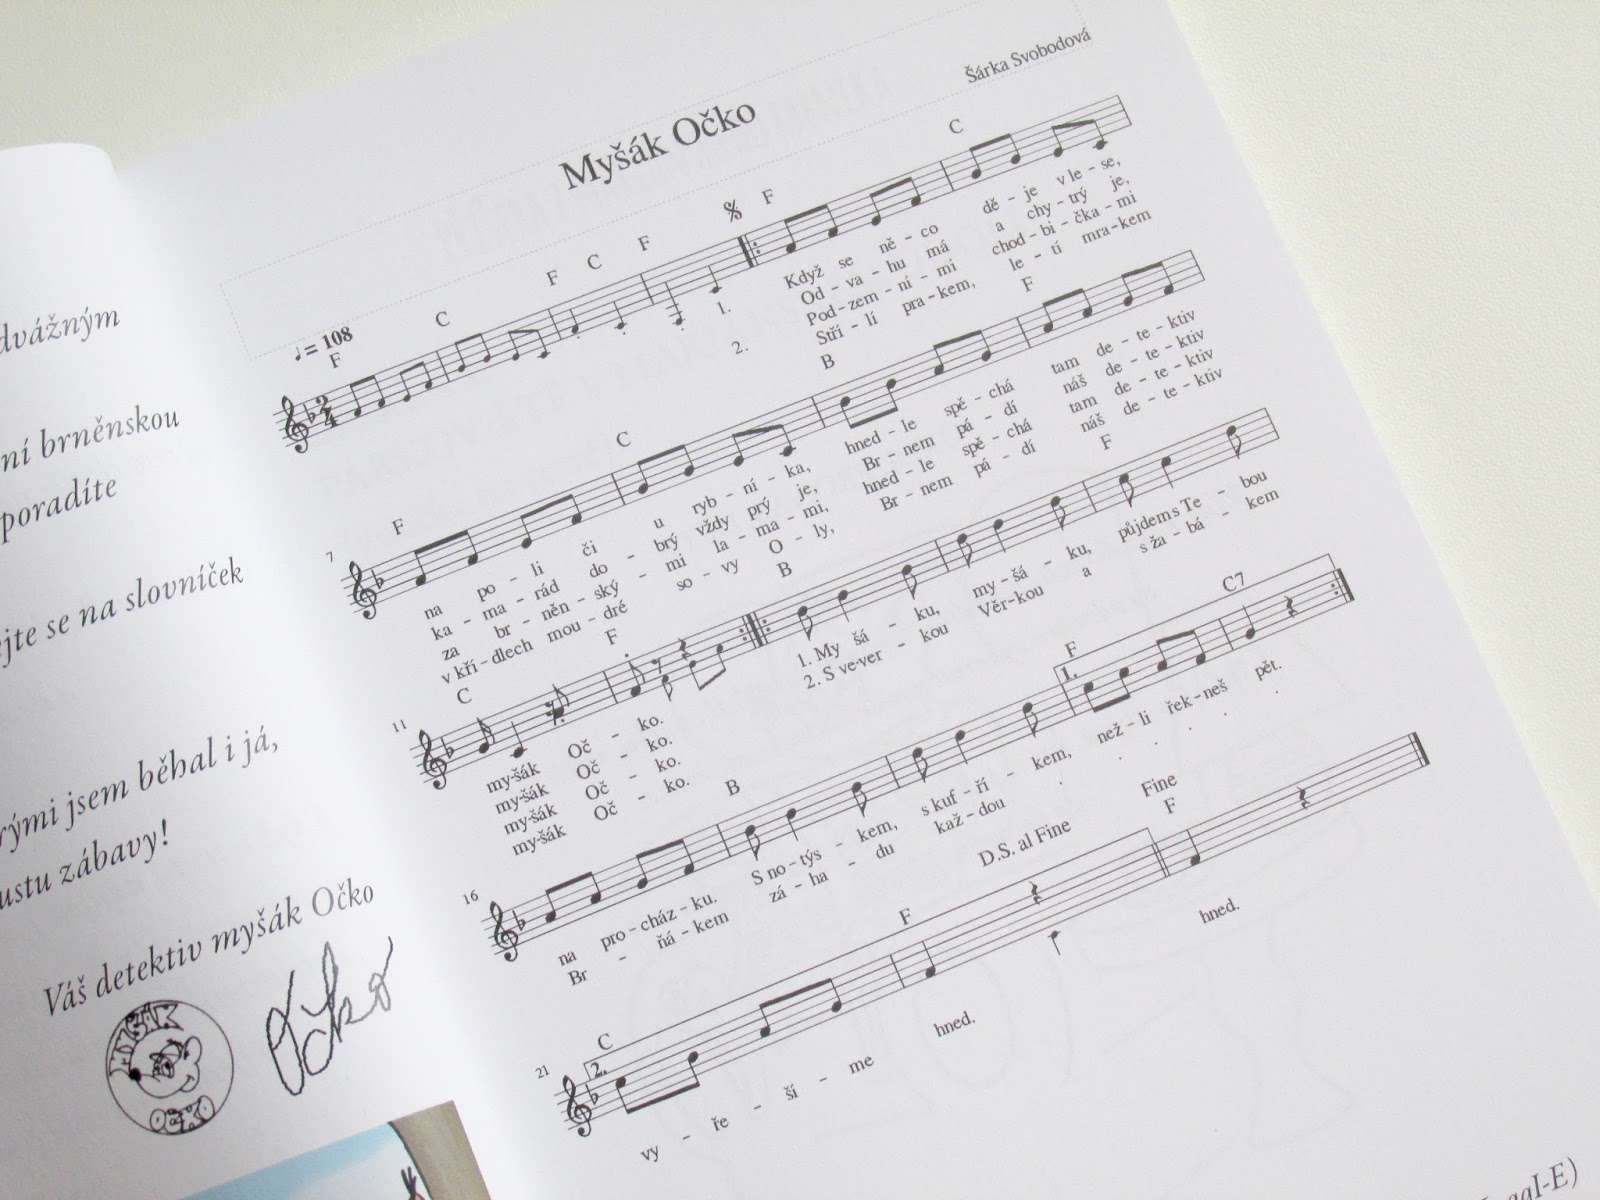 dvážným
ní brněnskou
poradíte
ejte se na slovníček
rými jsem běhal i já,
ustu zábavy!
Váš detektiv myšák Očko
MYŠÁK
OČKO
Očko
Myšák Očko
Šárka Svobodová
♩ = 108
F C F C F F C
1. Když se ně - co dě - je v le - se,
Od - va - hu má a chy - trý je,
2. Pod - zem - ní - mi chod - bi - čka - mi
Stří - lí prak - em, le - tí mra - kem
7
F C B F
na po - li či u ryb - ní - ka, hned - le spě - chá tam de - te - ktiv
ka - ma - rád do - brý vždy prý je, Br - nem pá - dí náš de - te - ktiv
za br - něn - ský - mi la - ma - mi, hned - le spě - chá tam de - te - ktiv
v kří - dlech mou - dré so - vy O - ly, Br - nem pá - dí náš de - te - ktiv
11
C F B F
my - šák Oč - ko. 1. My šá - ku, my - šá - ku, půjdem s Te - bou
my - šák Oč - ko. 2. S ve - ver - kou Věr - kou a s ža - bá - kem
my - šák Oč - ko.
my - šák Oč - ko.
16
B F C7
1.
na pro - cház - ku. S no - týs - kem, s kuf - ří - kem, než - li řek - neš pět.
Br - ňá - kem zá - ha - du kaž - dou . . . . .
21
C F D.S. al Fine Fine F
2.
vy - ře - ší - me hned. hned.